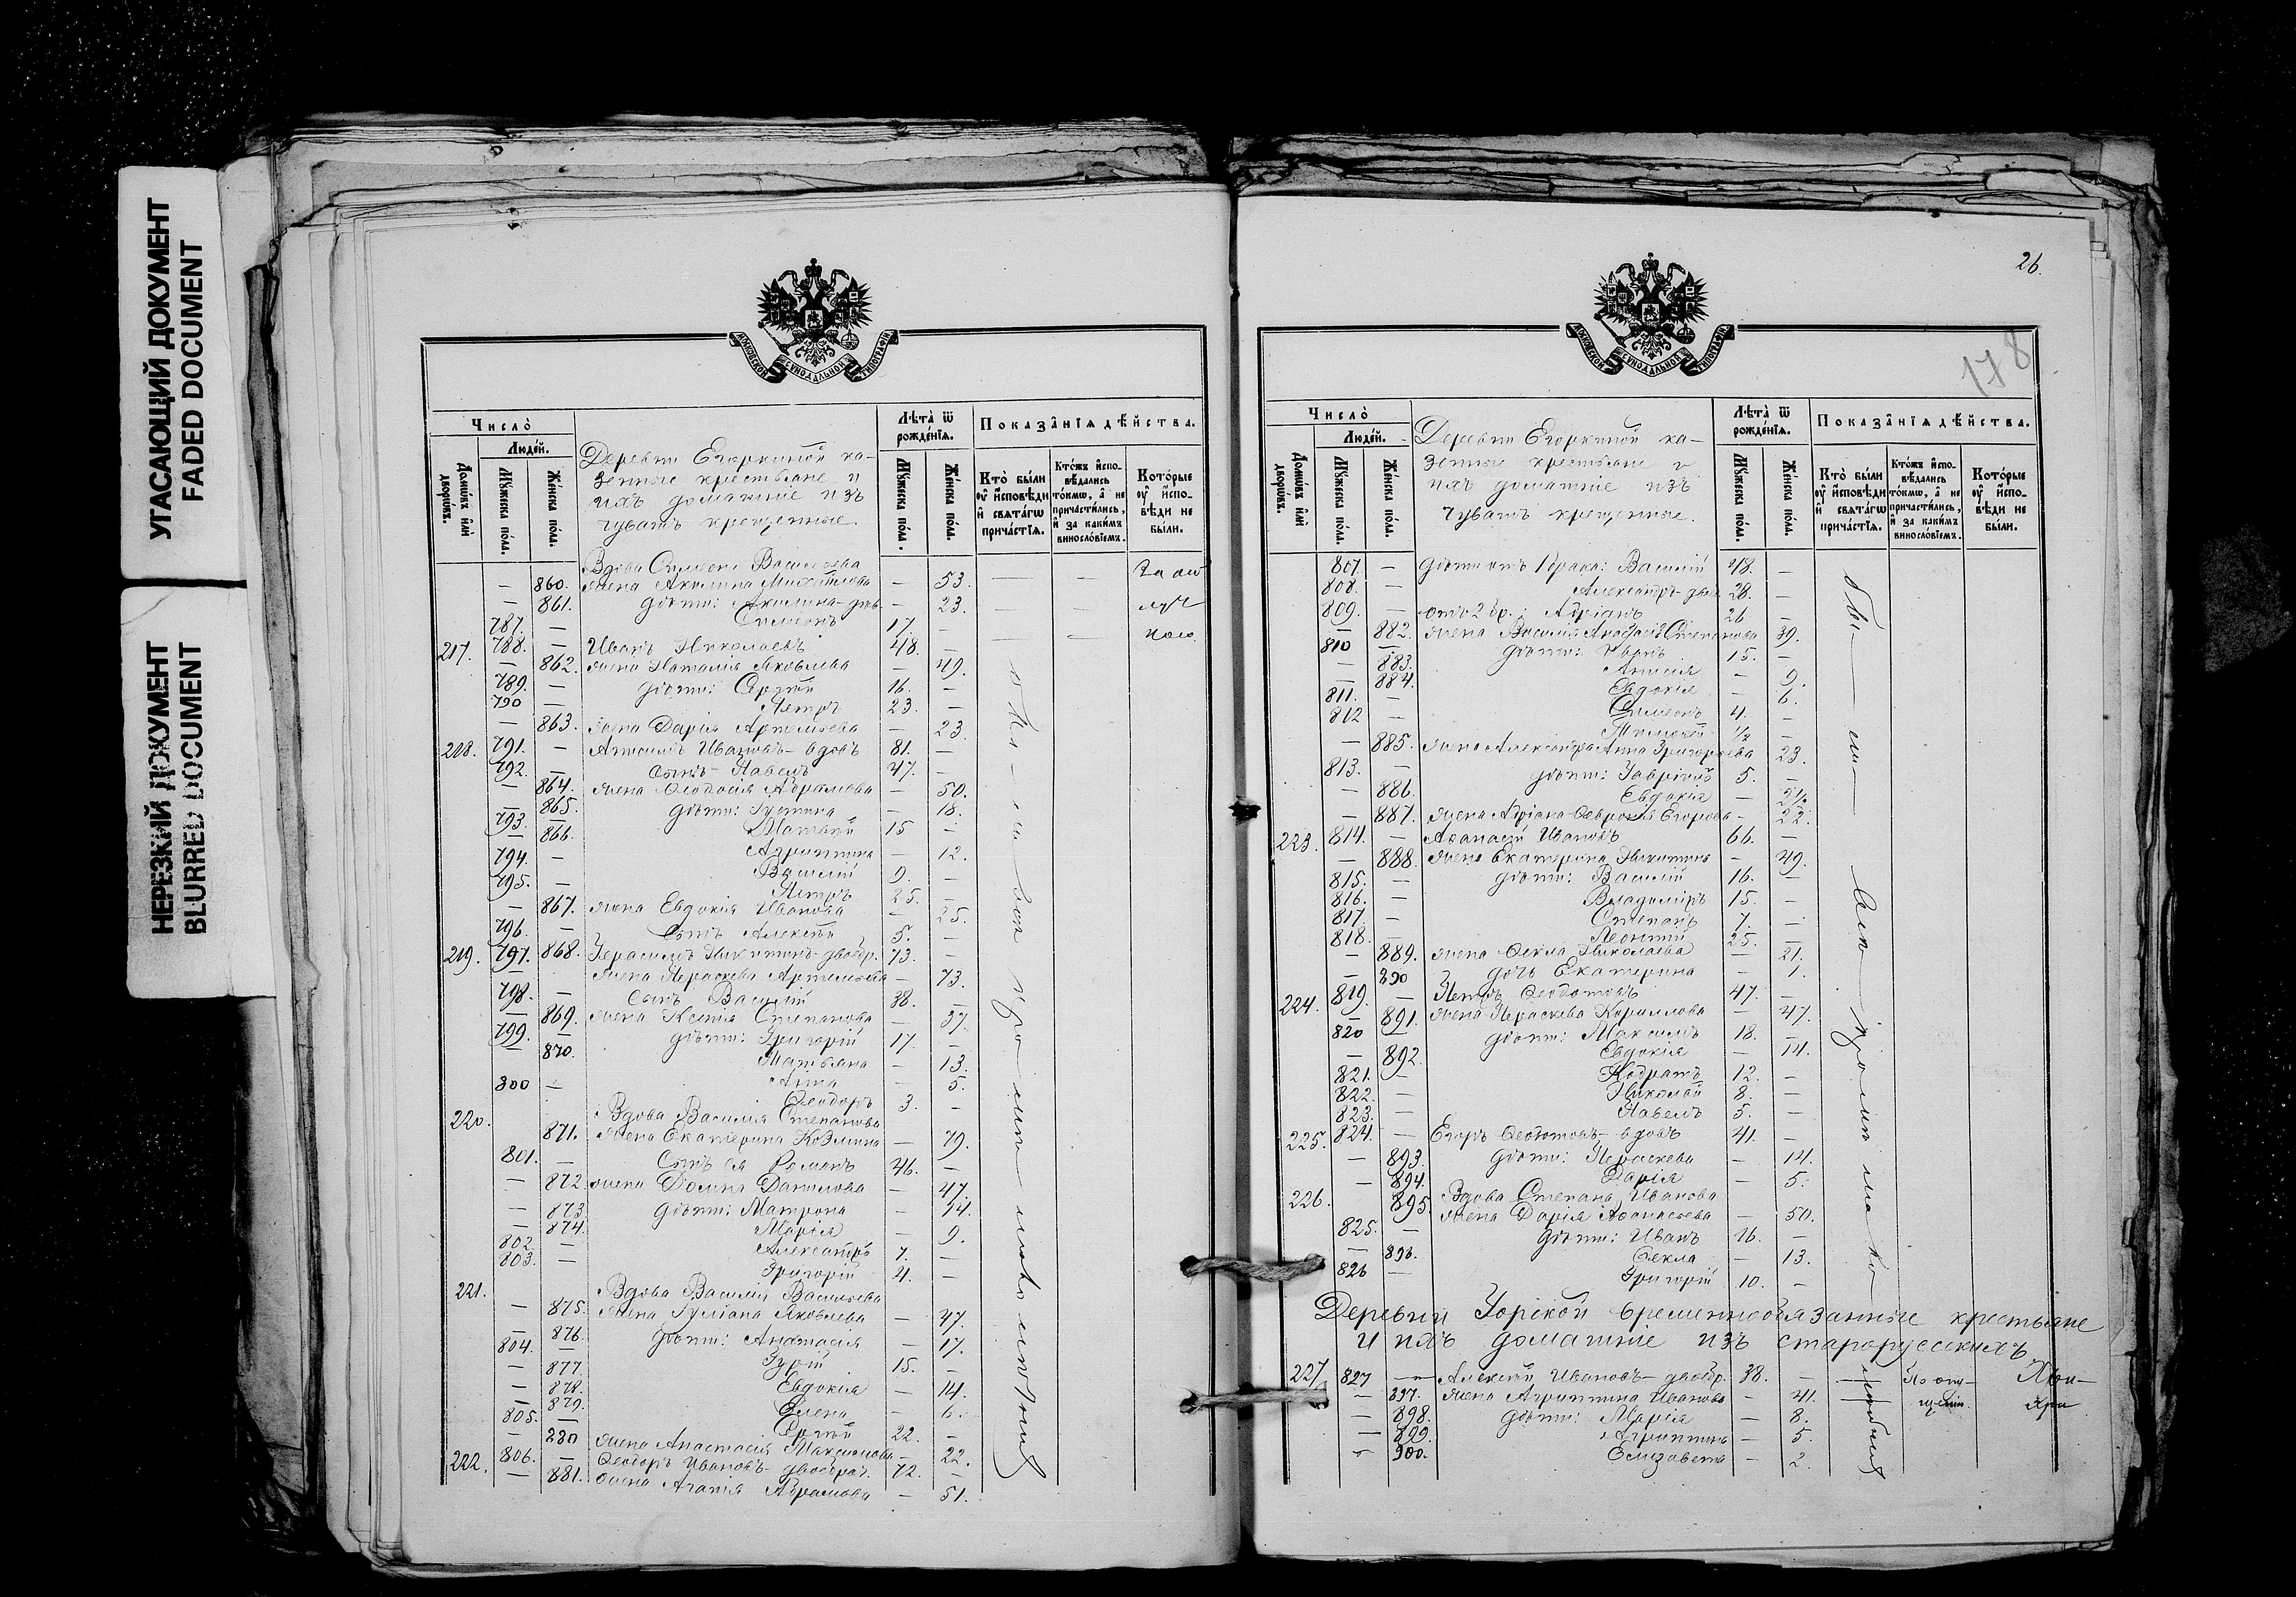 УГАСАЮЩИЙ ДОКУМЕНТ
FADED DOCUMENT
НЕРЕЗКИЙ ДОКУМЕНТ
BLURRED DOCUMENT
МОСКОВСКОЙ СѴНОДАЛЬНОЙ ТИПОГРАФІИ
Число̀
Людéй.
Домѡ́въ и҆лѝ дворѡ́въ.
Мꙋ́жеска пóла.
Жéнска пóла.
Деревни Егоркиной ка-
зенные крестьяне и
ихъ домашніе изъ
чувашъ крещенные.
Лѣта̀ ѿ рождéнїѧ.
Мꙋ́жеска пóла.
Жéнска пóла.
Показáнїѧ дѣ́йства.
Кто̀ бы́ли оу҆ и҆сповѣ́ди и҆ свѧта́гѡ причáстїѧ.
Кто́жъ и҆спо-вѣ́дались то́кмѡ, а҆ не причасти́лись, и҆ за каки́мъ винослóвїемъ.
Кото́рые оу҆ и҆спо-вѣ́ди не бы́ли.
Вдова Симеона Васильева
— 860. жена Акилина Михайлова — 53. — — За от
— 861. дѣти: Акилина-дѣв. — 23. — — луч
787. — Симеонъ 17. — — — кою.
217. 788. — Иванъ Николаевъ 48. —
— 862. жена Наталія Яковлева — 49.
789. — дѣти: Сергѣй 16. —
790 — Петръ 23. —
— 863. жена Дарія Артемьева — 23.
218. 791. — Антоній Ивановъ - вдовъ 81. —
792. — Сынъ - Павелъ 47. —
— 864. жена Ѳеодосія Абрамова — 50.
— 865. дѣти: Іустина — 18.
793. — Матвѣй 15 —
— 866. Агриппина — 12.
794. — Василій 9. —
795. — Петръ 25. —
— 867. жена Евдокія Иванова — 25.
796. — Сынъ Алексѣй 5. —
219. 797. 868. Герасимъ Никитинъ - двоебр. 73. —
— жена Параскева Артемьева — 73.
798. — Сынъ Василій 38. —
— 869. жена Ксенія Степанова — 37.
799. — дѣти: Григорій 17. —
— 870. Татьяна — 13.
Анна — 5.
800 — Ѳеодоръ 3. —
220. Вдова Василія Степанова
871. жена Екатерина Козмина — 79.
801. — Сынъ ея Романъ 46. —
— 872 жена Домна Данилова — 47.
— 873 дѣти: Матрона — 14.
— 874. Марія — 9.
802 — Александръ 7. —
803. — Григорій 4. —
221. Вдова Василія Васильева
— 875. жена Іуліана Яковлева — 47.
— 876. дѣти: Анастасія — 17.
804. — Гурій 15. —
— 877. Евдокія — 14.
— 878. Елена — 6.
— 879.
805. — Сергѣй 22. —
— 880 жена Анастасія Максимова — 22.
222. 806. — Ѳеодоръ Ивановъ - двоебрач. 72. —
— 881. жена Агапія Абрамова — 51.
26.
178
МОСКОВСКОЙ СѴНОДАЛЬНОЙ ТИПОГРАФІИ
Число̀
Людéй.
Домѡ́въ и҆лѝ дворѡ́въ.
Мꙋ́жеска пóла.
Жéнска пóла.
Деревни Егоркиной ка-
зенные крестьяне и
ихъ домашніе изъ
чувашъ крещенные.
Лѣта̀ ѿ рождéнїѧ.
Мꙋ́жеска пóла.
Жéнска пóла.
Показáнїѧ дѣ́йства.
Кто̀ бы́ли оу҆ и҆сповѣ́ди и҆ свѧта́гѡ причáстїѧ.
Кто́жъ и҆спо-вѣ́дались то́кмѡ, а҆ не причасти́лись, и҆ за каки́мъ винослóвїемъ.
Кото́рые оу҆ и҆спо-вѣ́ди не бы́ли.
807 — Дѣти отъ 1 брака: Василій 48. —
808. — Александръ 28. —
809. — отъ 2 бр.: Адріанъ 26 —
— 882. жена Василія Анастасія Степанова 39.
810 — дѣти: Иванъ 15. —
— 883. Анисія — 9.
— 884. Евдокія — 6.
811. — Симеонъ 4. —
812 — Тимоѳей 1/2 —
— 885. жена Александра Анна Григорьева 23.
813. — дѣти: Гавріилъ 5. —
— 886. Евдокія — 2 1/2
— 887. жена Адріана Ѳевронія Егорова - 22.
223. 814. — Аѳанасій Ивановъ 66. —
— 888. жена Екатерина Никитина — 49.
815. — дѣти: Василій 16. —
816. — Владиміръ 15. —
817. — Степанъ 7. —
818. — Леонтій 25. —
— 889. жена Ѳекла Николаева — 21.
— 890 дочь Екатерина — 1.
224. 819. — Петръ Ѳедотовъ 47. —
— 891. жена Параскева Кориллова — 47.
820 — дѣти: Максимъ 18. —
— 892. Евдокія — 14.
821. — Кодратъ 12. —
822. — Николай 8. —
823. — Павелъ 5. —
225. 824. — Егоръ Ѳедотовъ - вдовъ 41. —
— 893. дѣти: Параскева — 14.
— 894. Дарія — 5.
226. 895. Вдова Степана Иванова
жена Дарія Аѳанасьева — 50.
825. — дѣти: Иванъ 16. —
— 896. Ѳекла — 13.
826 — Григорій 10. —
Деревни Уорской временнообязанные крестьяне
и ихъ домашніе изъ старорусскихъ
227. 827 — Алексѣй Ивановъ - двоебр. 38. —
— 897. жена Агриппина Иванова — 41.
— 898. дѣти: Марія — 8.
— 899. Агриппина — 5.
— 900. Елизавета — 2.